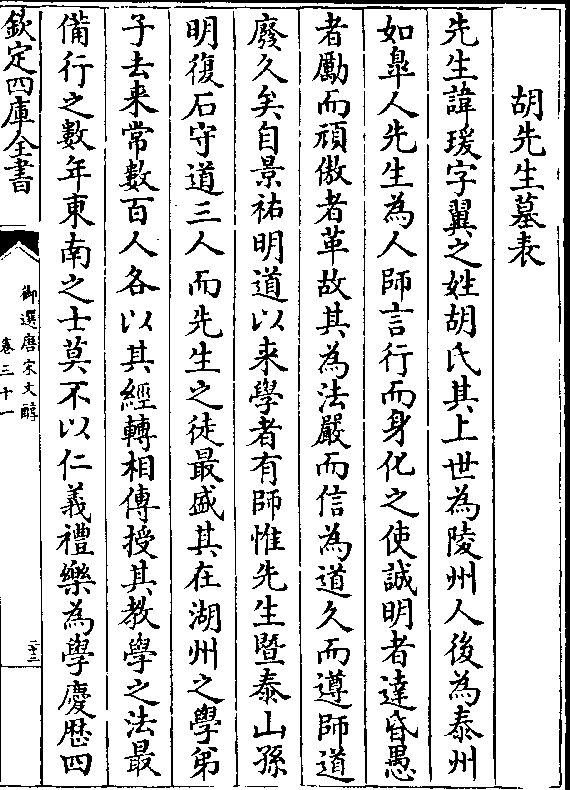 胡先生墓表
先生諱瑗字翼之姓胡氏其上世為陵州人後為泰州
如皐人先生為人師言行而身化之使誠明者達昏愚
者勵而頑傲者革故其為法嚴而信為道久而遵師道
廢久矣自景祐明道以來學者有師惟先生暨泰山孫
明復石守道三人而先生之徒最盛其在湖州之學弟
子去来常數百人各以其經轉相傳授其教學之法最
備行之數年東南之士莫不以仁義禮樂為學慶歴四
欽定四庫全書
御選唐宋文醇
卷三十一
二十三